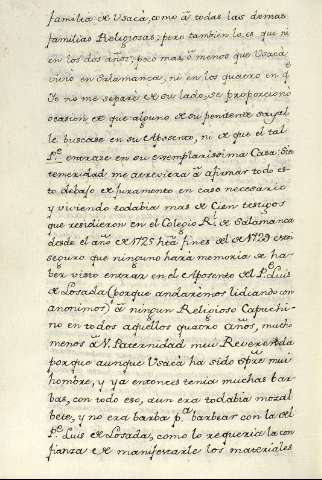 familia de Vsacà, como à todas las demas
familias Religiosas; pero tambien lo es que ni
en los dos años, poco mas, ò menos que Vsacà
vivio en Salamanca, ni en los quatro en q̃
Yo no me separè de su lado, se proporcionò
ocasion de que alguno de su pendente sayal
le buscase en su Aposento, ni de que el tal
P.e entrase en su exemplarissima Casa: Sin
temeridad me atreviera à afirmar todo es-
to debajo de juramento en caso necesario
y viviendo todabia mas de Cien testigos
que residieron en el Colegio R.l de Salamanca
desde el año de 1725 hta fines del de 1729 estoi
seguro que ninguno harà memoria de ha-
ber visto entrar en el Aposento del P.e Luis
de Losada (porque andaremos lidiando con
anonimos) à ningun Religioso Capuchi-
no en todos aquellos quatro años, mucho
menos à V. Paternidad mui Reverenda
porque aunque Vsacà ha sido spre mui
hombre, y ya entonces tenia muchas bar-
bas, con todo eso, aun era todabia mozal
bete, y no era barba p.a barbear con la del
P.e Luis de Losada, como lo requeria la con
fianza de manifestarle los materiales